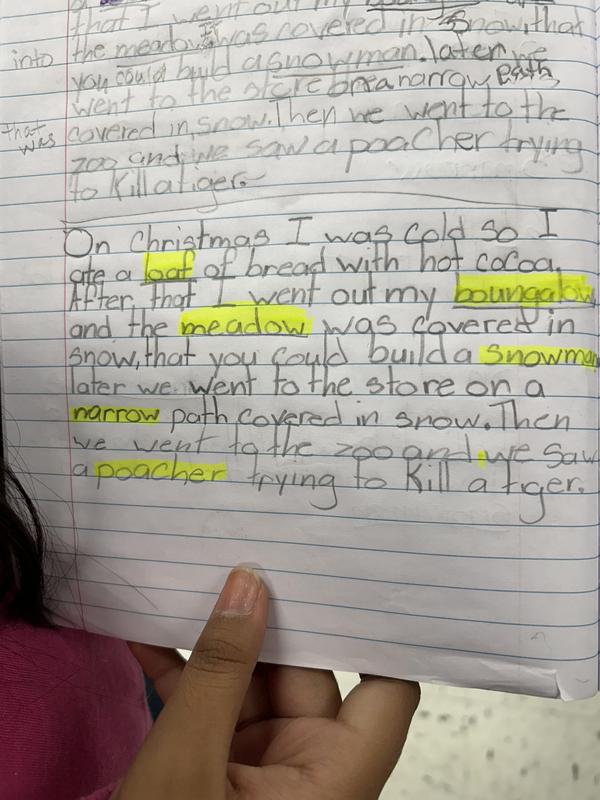 that I went out my
the meadow was covered in snow, that
into
you could build a snowman. later we
went to the store narrow path
that was
covered in, snow. Then we went to the
zoo and we saw a poacher trying
to Kill a tiger.
On Christmas I was cold so I
ate a loaf of bread with hot cocoa.
After, that I went out my boungalow
and the meadow was covered in
snow, that you could build a snowman
later we went to the store on a
narrow path, covered in snow. Then
we went to the zoo and we saw
a poacher trying to Kill a tiger.